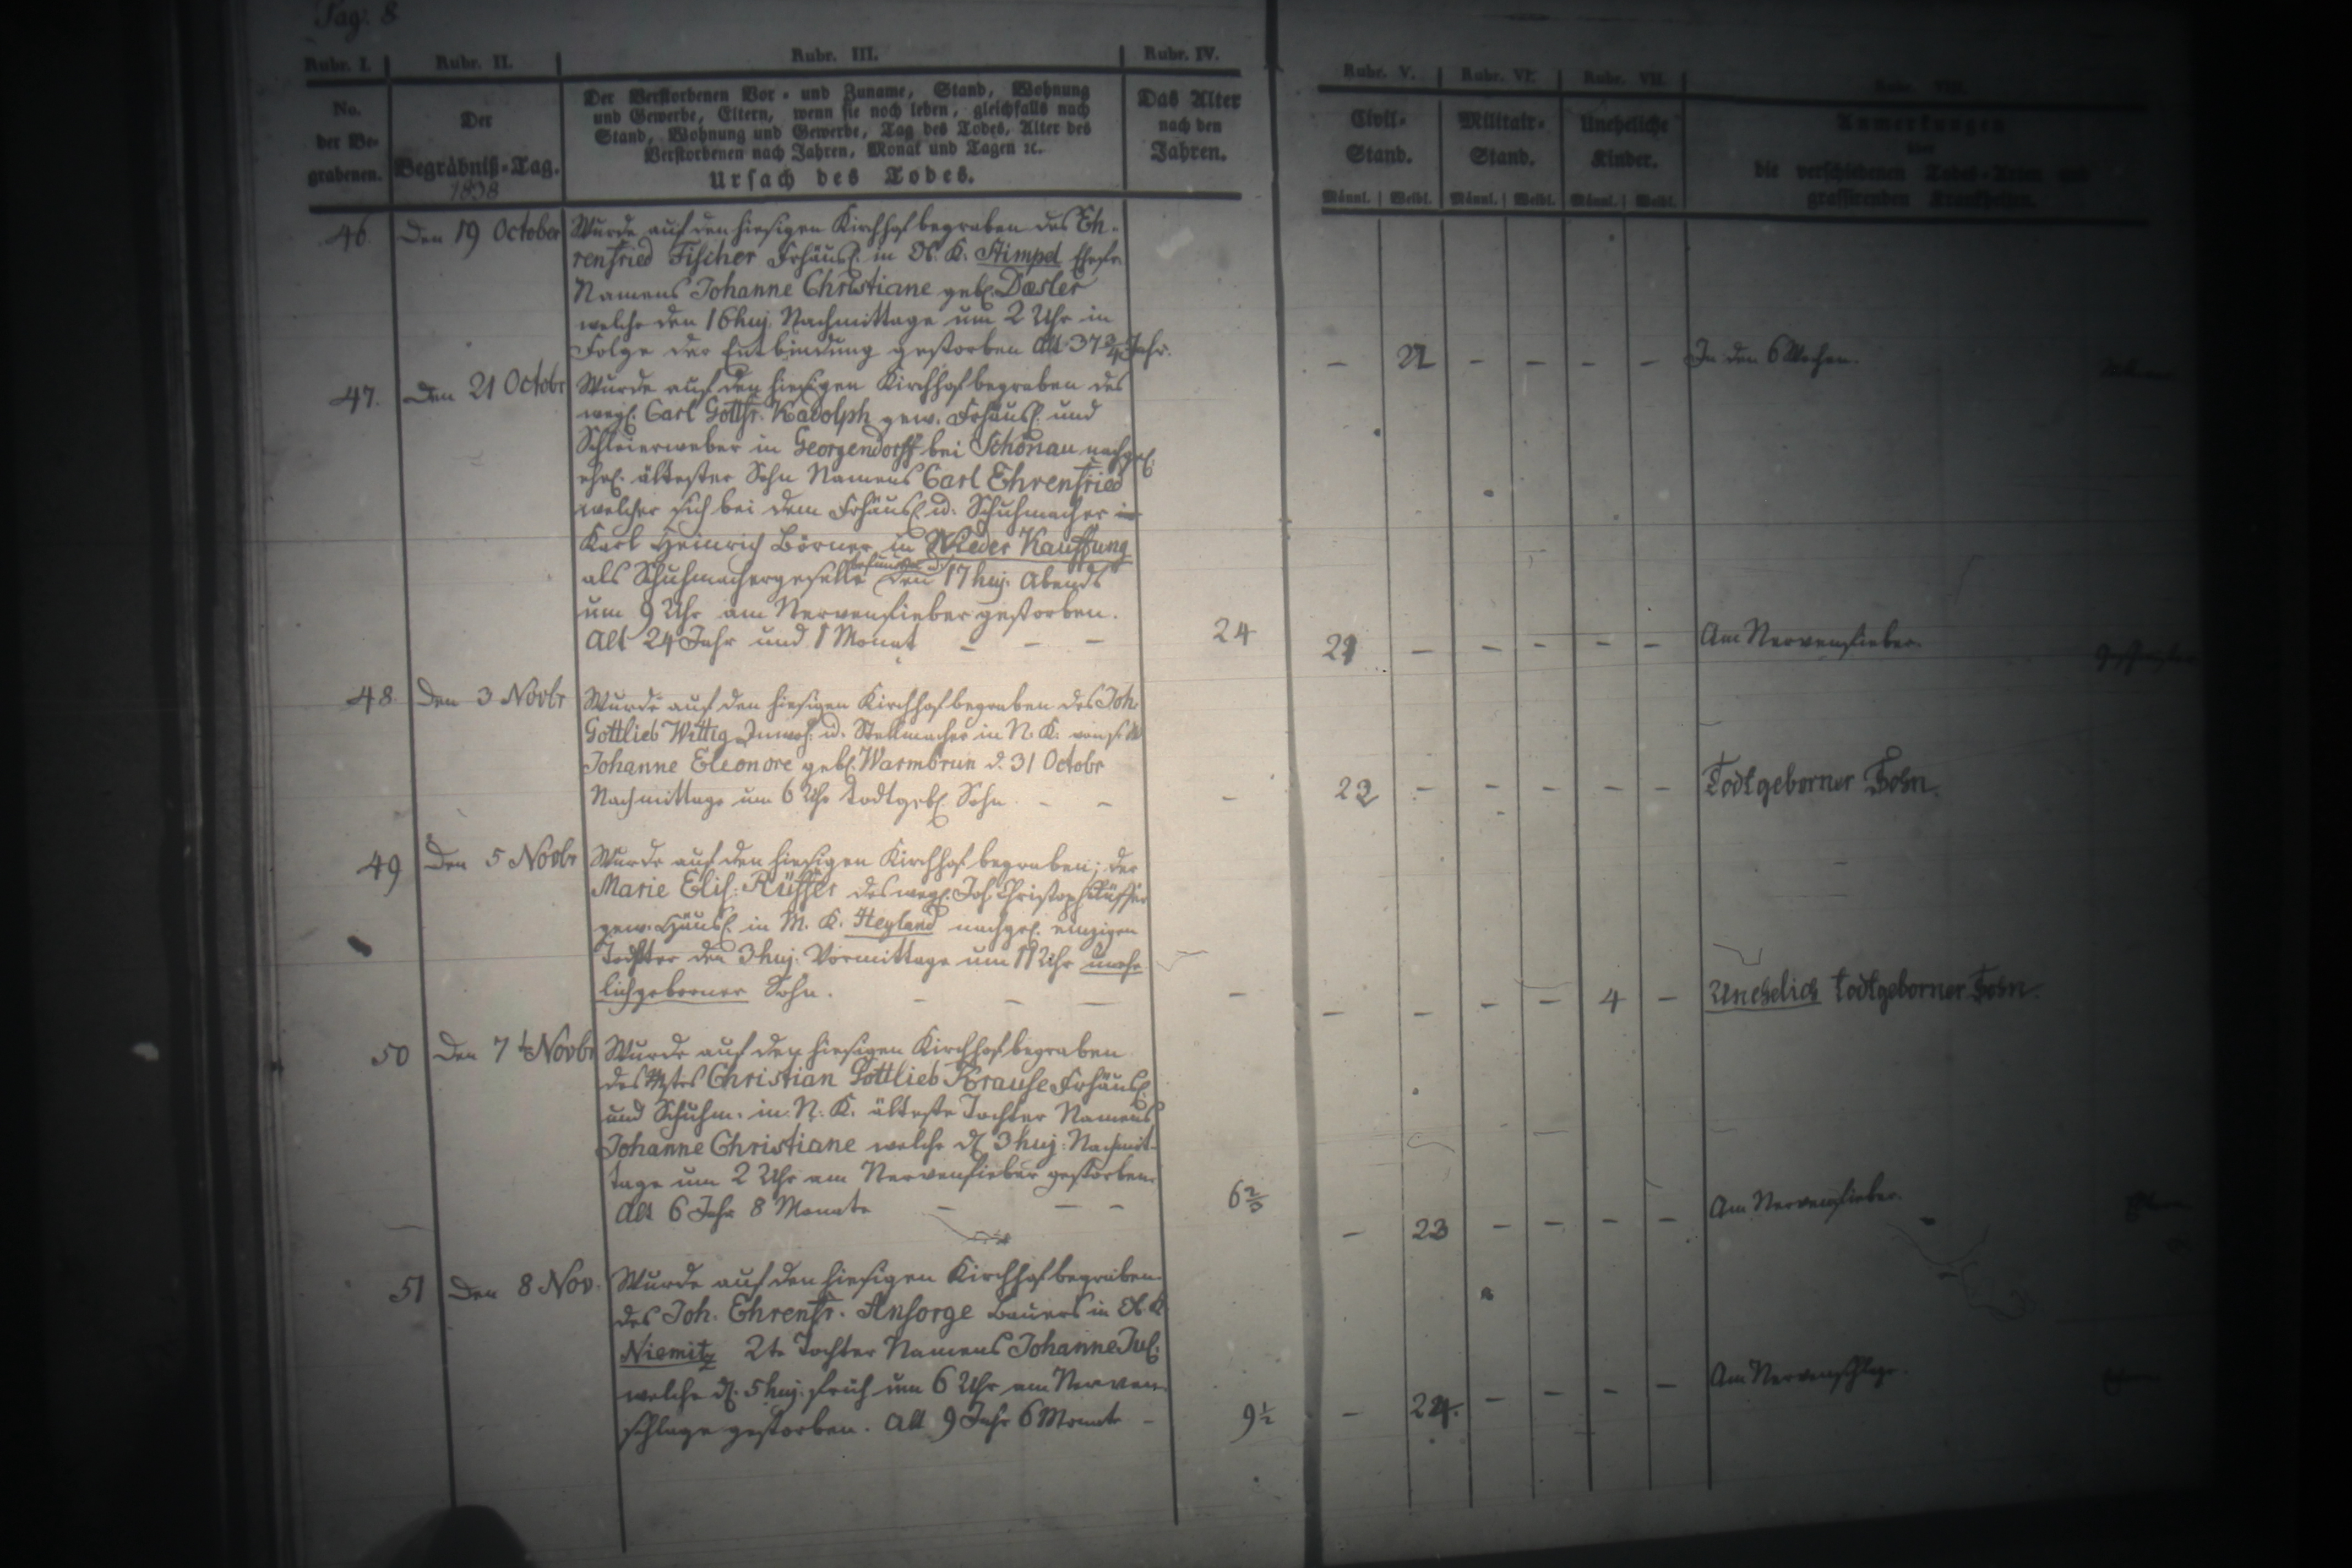 Pag: 8
Rubr. I. Rubr. II. Rubr. III. Rubr. IV. Rubr. V. Rubr. VI. Rubr. VII. Rubr. VIII.
No. der Be-grabenen.
Der Begräbniß-Tag.
1838
Der Verstorbenen Vor- und Zuname, Stand, Wohnung
und Gewerbe, Eltern, wenn sie noch leben, gleichfalls nach
Stand, Wohnung und Gewerbe, Tag des Todes, Alter des
Verstorbenen nach Jahren, Monat und Tagen ꝛc.
Ursach des Todes.
Das Alter
nach den
Jahren.
Civil-
Stand.
Männl. Weibl.
Militair-
Stand.
Männl. Weibl.
Uneheliche
Kinder.
Männl. Weibl.
Anmerkungen
über
die verschiedenen Todes-Arten und
grassirenden Krankheiten.
46. Den 19 October
Wurde auf den hiesigen Kirchhof begraben des Eh-
renfried Fischer Frhäusl. in K. Stimpel Ehefr.
Namens Johanne Christiane geb. Daesler
welche den 16 huj. Nachmittags um 2 Uhr in
Folge der Entbindung gestorben Alt 37 3/4 Jahr.
– – – – – In den 6 Wochen.
47. Den 21 Octobr
Wurde auf den hiesigen Kirchhof begraben des
weyl. Carl Gottfr. Kadolph gew. Frhäusl. und
Schleierweber in Georgendorff bei Schönau nachgel.
ehel. ältester Sohn Namens Carl Ehrenfried
welcher sich bei dem Frhäusl. u. Schuhmacher
Karl Heinrich Börner in Nieder Kauffung
als Schuhmachergeselle den 17 huj. Abends
um 9 Uhr am Nervenfieber gestorben.
Alt 24 Jahr und 1 Monat – – – 24 21 – – – – – Am Nervenfieber.
48 Den 3 Novbr
Wurde auf den hiesigen Kirchhof begraben des Joh.
Gottlieb Wittig Inwoh. u. Stellmacher in N. K. von
Johanne Eleonore geb. Warmbrun d. 31 Octobr
Nachmittags um 6 Uhr todtgeb. Sohn. – – – 22 – – – – – Todtgeborner Sohn.
49 Den 5 Novbr
Wurde auf den hiesigen Kirchhof begraben; der
Marie Elis. Rüffer des weyl. Joh. Christoph Rüffer
gew. Häusl. in M. K. Heyland nachgel. einzigen
Tochter den 3 huj. Vormittags um 11 Uhr unehe
lichgeborner Sohn. – – – – – – – – 4 – Unehelich todtgeborner Sohn.
50 Den 7 t Novbr
Wurde auf den hiesigen Kirchhof begraben
des Christian Gottlieb Krause Frhäusl.
und Schuhm. in N. K. älteste Tochter Namens
Johanne Christiane welche d. 3 huj. Nachmit-
tags um 2 Uhr am Nervenfieber gestorben.
Alt 6 Jahr 8 Monate – – – 6 2/3 – 23 – – – – Am Nervenfieber.
51 Den 8 Nov.
Wurde auf den hiesigen Kirchhof begraben.
des Joh. Ehrenfr. Ansorge Bauers in K.
Niemitz 2te Tochter Namens Johanne Jul.
welche d. 5 huj. früh um 6 Uhr am Nerven-
schlage gestorben. Alt 9 Jahr 6 Monate – 9 1/2 – 24. – – – – Am Nervenschlage.